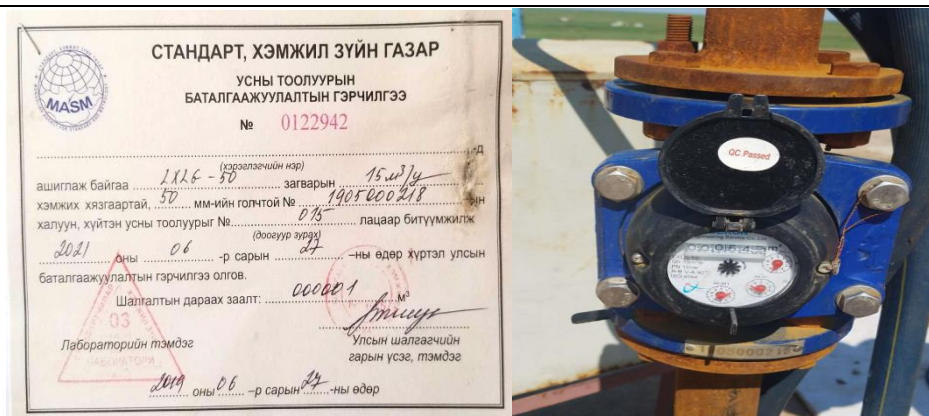 СТАНДАРТ, ХЭМЖИЛ ЗҮЙН ГАЗАР
MASM
УСНЫ ТООЛУУРЫН
БАТАЛГААЖУУЛАЛТЫН ГЭРЧИЛГЭЭ
№ 0122942
-д
(хэрэглэгчийн нэр)
ашиглаж байгаа LXLG - 50 загварын 15 м³/ц
хэмжих хязгаартай, 50 мм-ийн голчтой № 1905000218 -ын
халуун, хүйтэн усны тоолуурыг № 015 лацаар битүүмжилж
(доогуур зурах)
2021 оны 06 -р сарын 27 –ны өдөр хүртэл улсын
баталгаажуулалтын гэрчилгээ олгов.
Шалгалтын дараах заалт: 000001 м³
Лабораторийн тэмдэг
Улсын шалгагчийн
гарын үсэг, тэмдэг
03
2019 оны 06 –р сарын 27 -ны өдөр
QC.Passed